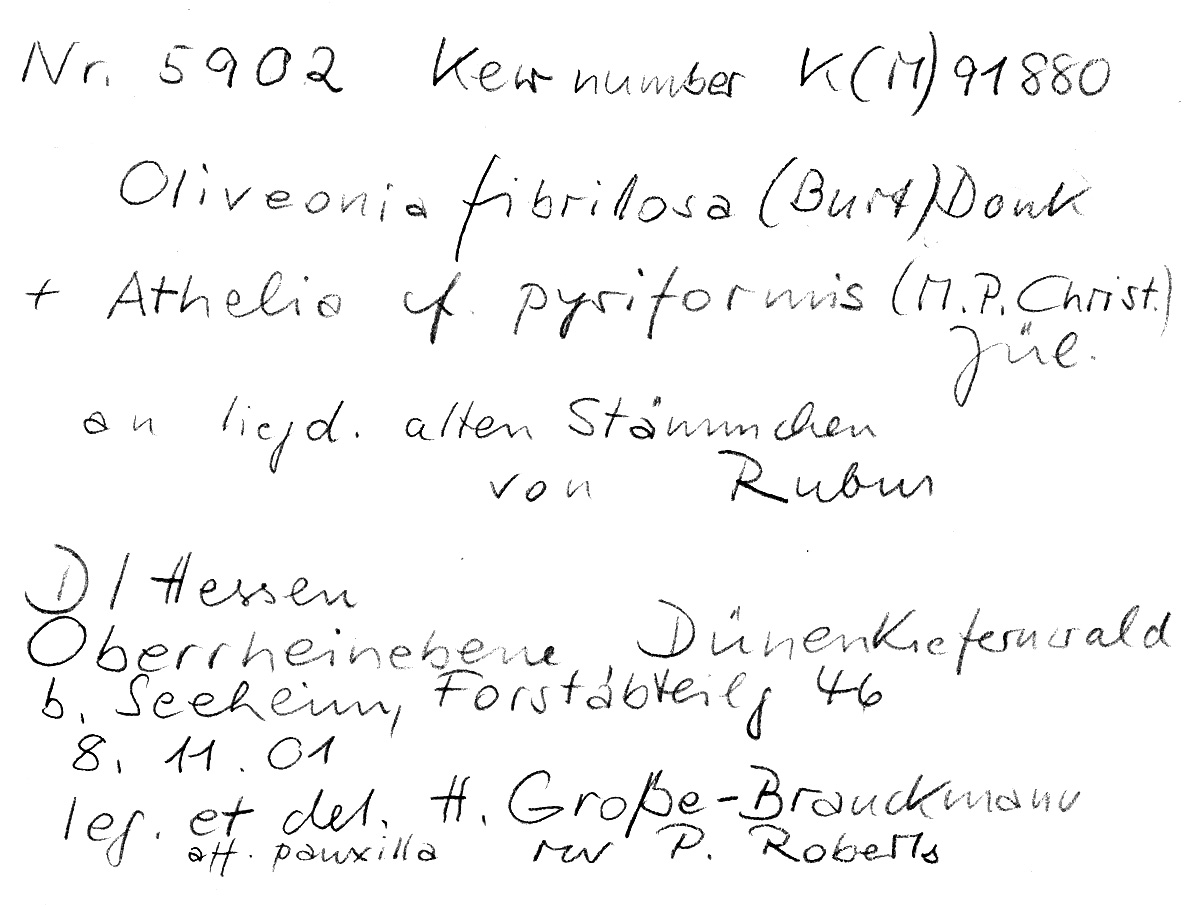 Nr. 5902 Kew number K(M) 91880
Oliveonia fibrillosa (Burt) Donk
+ Athelia cf. pyriformis (M.P. Christ.)
Jül.
an liegd. alten Stämmchen
von Rubus
D / Hessen
Oberrheinebene, Dünenkiefernwald
b. Seeheim, Forstabteilg 46
8. 11. 01
leg. et det. H. Große-Brauckmann
aff. pauxilla rev P. Roberts